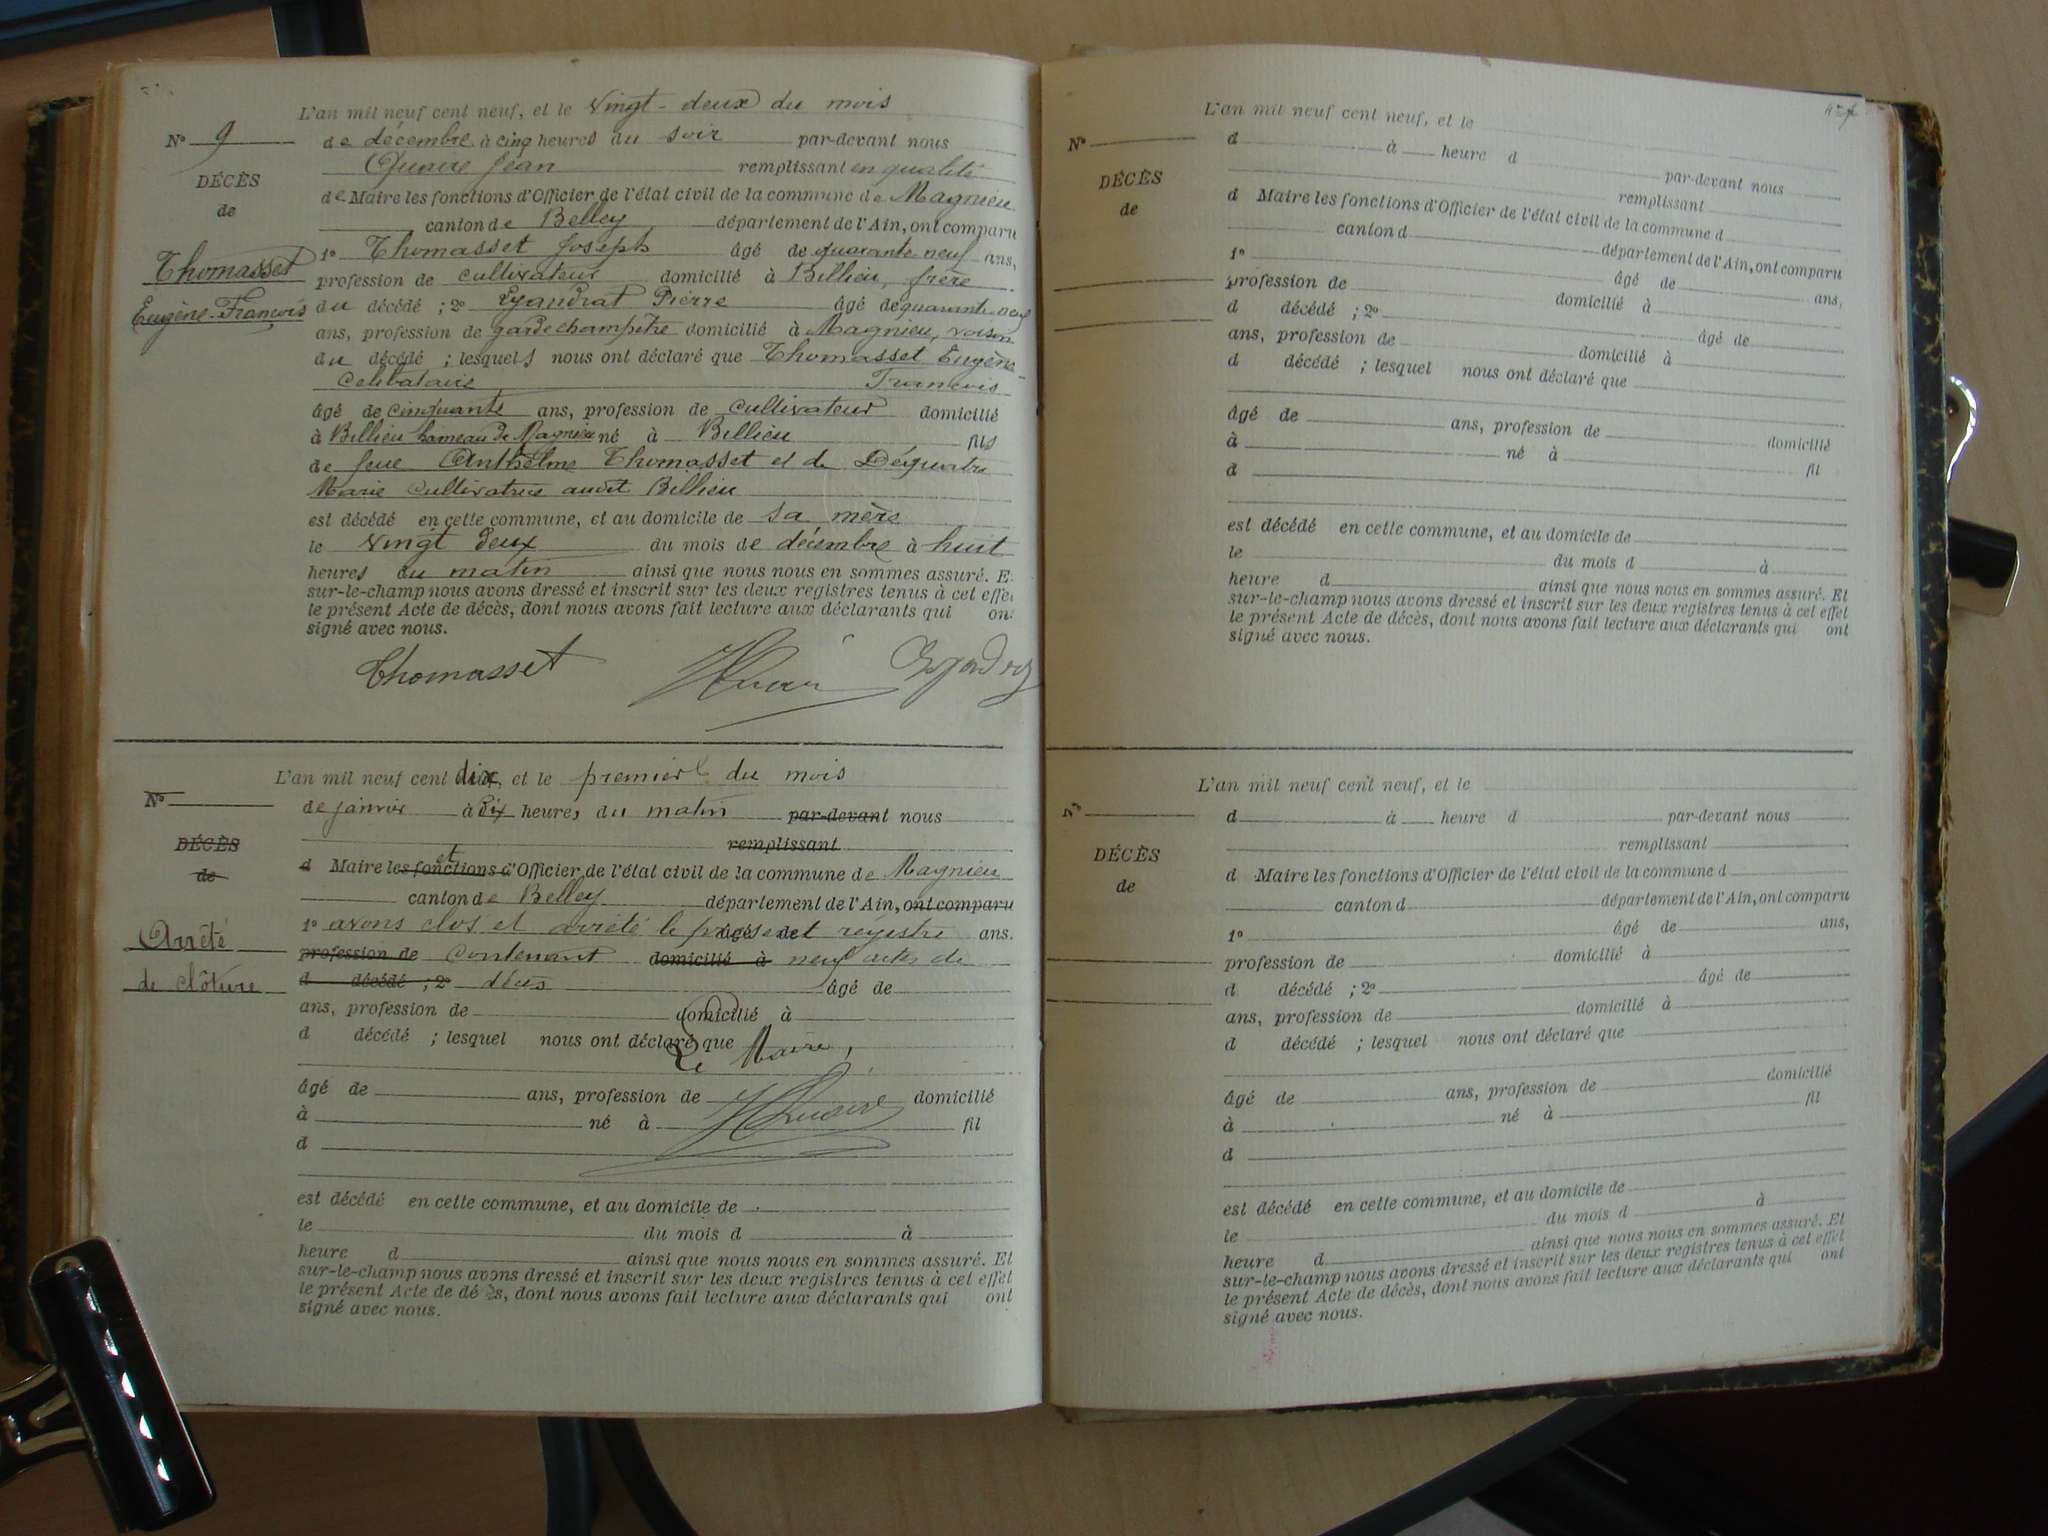 L'an mil neuf cent neuf, et le vingt-deux du mois
N° 9
de décembre à cinq heures du soir par-devant nous
Jean remplissant en qualité
DÉCÈS
de Maire les fonctions d'Officier de l'état civil de la commune de Magnieu
de
canton de Belley département de l'Ain, ont comparu
1° Thomasset Joseph âgé de quarante neuf ans,
Thomasset
profession de cultivateur domicilié à Billieu, frère
Eugène-François
du décédé ; 2° Pierre âgé de quarante neuf
ans, profession de garde champêtre domicilié à Magnieu, voisin
du décédé ; lesquels nous ont déclaré que Thomasset Eugène-
célibataire François
âgé de cinquante ans, profession de cultivateur domicilié
à Billieu hameau de Magnieu né à Billieu fils
de feue Anthelme Thomasset et de
Marie cultivatrice audit Billieu
est décédé en cette commune, et au domicile de sa mère
le vingt deux du mois de décembre à huit
heures du matin ainsi que nous nous en sommes assuré. E
sur-le-champ nous avons dressé et inscrit sur les deux registres tenus à cet effe
le présent Acte de décès, dont nous avons fait lecture aux déclarants qui on
signé avec nous.
Thomasset
L'an mil neuf cent dix, et le premier du mois
N°
de janvier à dix heures du matin par-devant nous
DÉCÈS
remplissant
de
et
d Maire les fonctions d'Officier de l'état civil de la commune de Magnieu
canton de Belley département de l'Ain, ont comparu
Arrêté
1° avons clos et arrêté le présent âgé de registre ans.
profession de contenant domicilié à neuf actes de
de clôture
d décédé ; 2° décès âgé de
ans, profession de domicilié à
d décédé ; lesquel nous ont déclaré que
Le Maire,
âgé de ans, profession de domicilié
à né à fil
d
est décédé en cette commune, et au domicile de
le du mois d à
heure d ainsi que nous nous en sommes assuré. Et
sur-le-champ nous avons dressé et inscrit sur les deux registres tenus à cet effet
le présent Acte de dé ès, dont nous avons fait lecture aux déclarants qui ont
signé avec nous.
L'an mil neuf cent neuf, et le
N°
d à heure d
par-devant nous
DÉCÈS
remplissant
de
d Maire les fonctions d'Officier de l'état civil de la commune d
canton d département de l'Ain, ont comparu
1° âgé de ans,
profession de domicilié à
d décédé ; 2° âgé de
ans, profession de domicilié à
d décédé ; lesquel nous ont déclaré que
âgé de ans, profession de domicilié
à né à fil
d
est décédé en cette commune, et au domicile de
le du mois d à
heure d ainsi que nous nous en sommes assuré. Et
sur-le-champ nous avons dressé et inscrit sur les deux registres tenus à cet effet
le présent Acte de décès, dont nous avons fait lecture aux déclarants qui ont
signé avec nous.
L'an mil neuf cent neuf, et le
N°
d à heure d par-devant nous
remplissant
DÉCÈS
de
d Maire les fonctions d'Officier de l'état civil de la commune d
canton d département de l'Ain, ont comparu
1° âgé de ans,
profession de domicilié à
d décédé ; 2° âgé de
ans, profession de domicilié à
d décédé ; lesquel nous ont déclaré que
âgé de ans, profession de domicilié
à né à fil
d
est décédé en cette commune, et au domicile de
le du mois d à
heure d ainsi que nous nous en sommes assuré. Et
sur-le-champ nous avons dressé et inscrit sur les deux registres tenus à cet effet
le présent Acte de décès, dont nous avons fait lecture aux déclarants qui ont
signé avec nous.